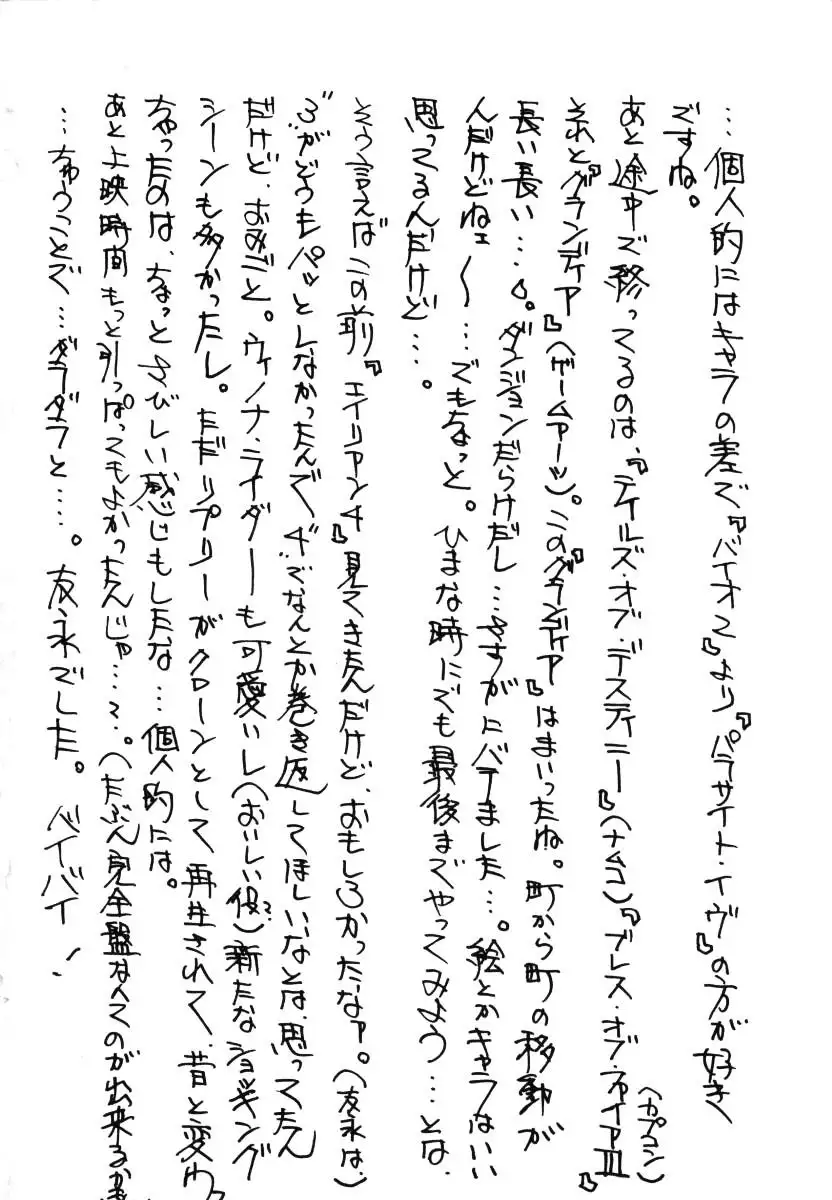 …個人的にはキャラの差で『バイオ2』より『パラサイト・イヴ』の方が好き
ですね。
あと途中で終ってるのは、『テイルズ・オブ・デスティニー』(ナムコ)『ブレス・オブ・ファイアIII』(カプコン)
それと『グランディア』(ゲームアーツ)。この『グランディア』はまいったね。町から町の移動が
長い長い…。ダンジョンだらけだし…さすがにバテました…。絵とかキャラないい
んだけどねェ〜…でもちょっと。ひまな時にでも最後までやってみよう…とは、
思ってるんだけど…。
そう言えばこの前『エイリアン4』見てきたんだけど、おもしろかったなァ。(友永は、)
"3"がどうもパッとしなかったんで、"4"でなんとか巻き返してほしいなとは、思ってたん
だけど、おみごと。ウィノナ・ライダーも可愛いし(おいしい役?)新たなショッキング
シーンも多かったし。ただリプリーがクローンとして再生されて、昔と変わっ
ちゃったのは、ちょっとさびしい感じもしたな…個人的には。
あと上映時間もっと引っぱってもよかったんじゃ…?。(たぶん完全盤なんてのが出来るか
…ちゅうことで…ダラダラと…。友永でした。バイバイ!